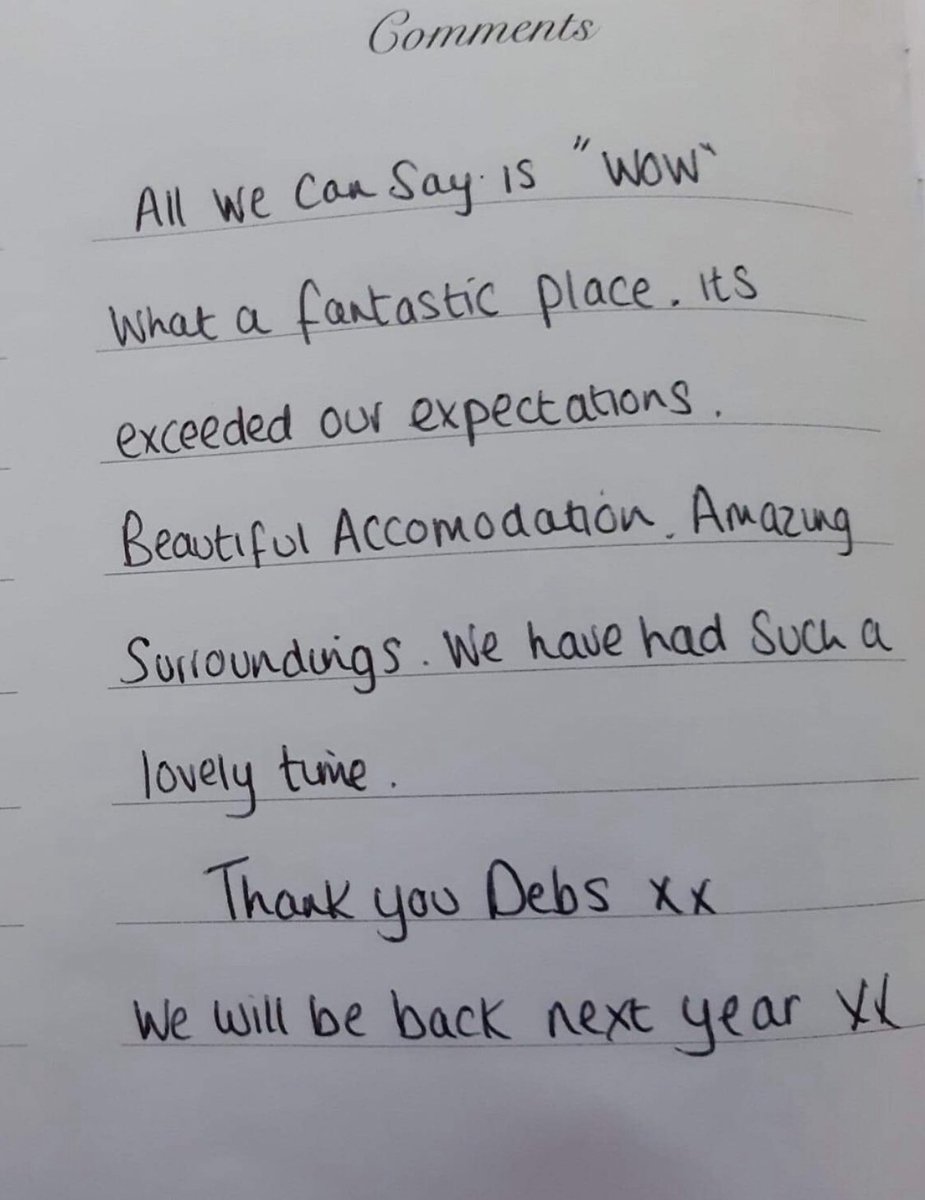 Comments
All we can say is "WOW"
What a fantastic place. its
exceeded our expectations.
Beautiful Accomodation. Amazing
Surroundings. We have had such a
lovely time.
Thank you Debs xx
We will be back next year xx